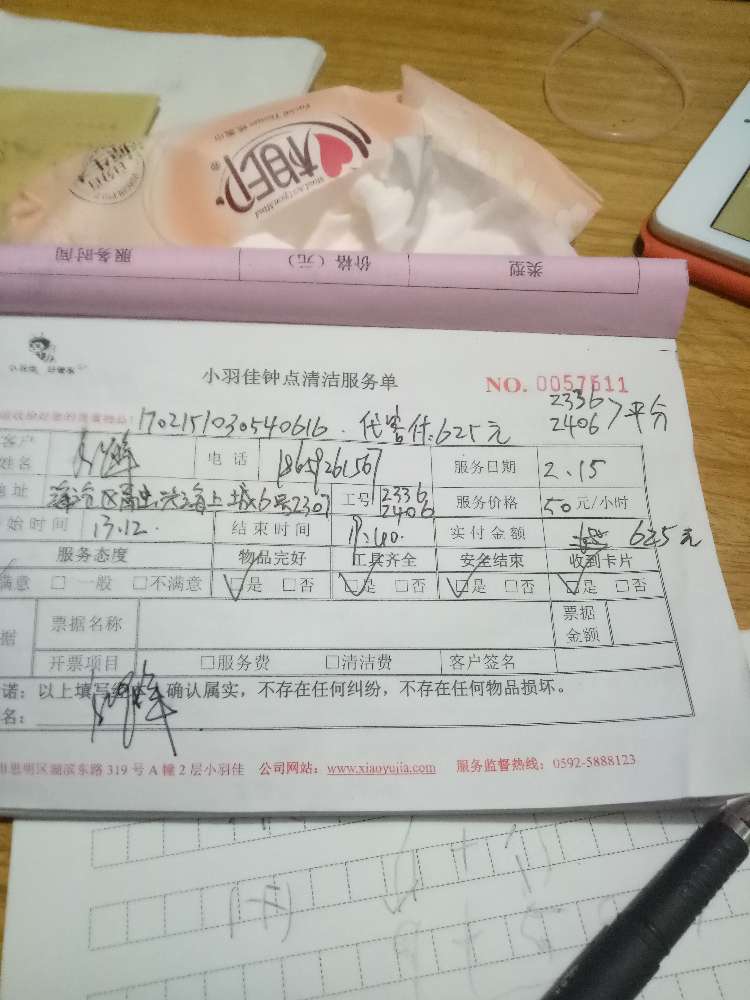 Facial Tissue
心相印
Mind Act Upon Mind
服务时间 价格（元） 类型
小羽佳钟点清洁服务单
NO. 0057611
1702151030540616. 代客付:625元
2336
2406 >平分
客户姓名 电话 18659261567 服务日期 2.15
地址 上城6号2307 工号 2336 2406 服务价格 50元/小时
始时间 13.12. 结束时间 实付金额 625元
服务态度 物品完好 工具齐全 安全结束 收到卡片
满意 □一般 □不满意 □是 □否 □是 □否 □是 □否 □是 □否
据 票据名称 票据金额
开票项目 □服务费 □清洁费 客户签名
诺：以上填写 确认属实，不存在任何纠纷，不存在任何物品损坏。
名：
思明区湖滨东路319号A幢2层小羽佳 公司网站：www.xiaoyujia.com 服务监督热线：0592-5888123